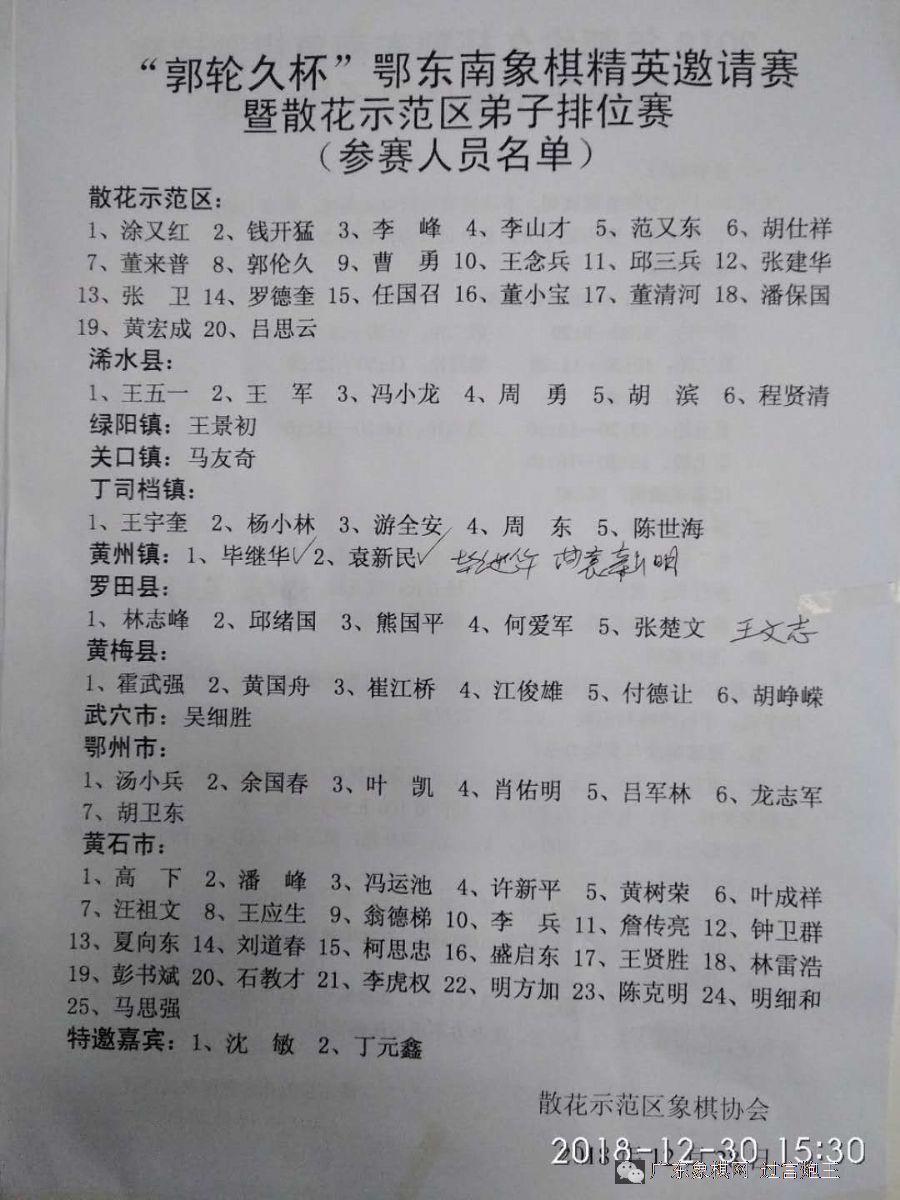 “郭轮久杯”鄂东南象棋精英邀请赛
暨散花示范区弟子排位赛
（参赛人员名单）
散花示范区：
1、涂又红 2、钱开猛 3、李 峰 4、李山才 5、范又东 6、胡仕祥
7、董来普 8、郭伦久 9、曹 勇 10、王念兵 11、邱三兵 12、张建华
13、张 卫 14、罗德奎 15、任国召 16、董小宝 17、董清河 18、潘保国
19、黄宏成 20、吕思云
浠水县：
1、王五一 2、王 军 3、冯小龙 4、周 勇 5、胡 滨 6、程贤清
绿阳镇：王景初
关口镇：马友奇
丁司档镇：
1、王宇奎 2、杨小林 3、游全安 4、周 东 5、陈世海
黄州镇：1、毕继华✓ 2、袁新民✓ 袁新明
罗田县：
1、林志峰 2、邱绪国 3、熊国平 4、何爱军 5、张楚文 王文志
黄梅县：
1、霍武强 2、黄国舟 3、崔江桥 4、江俊雄 5、付德让 6、胡峥嵘
武穴市：吴细胜
鄂州市：
1、汤小兵 2、余国春 3、叶 凯 4、肖佑明 5、吕军林 6、龙志军
7、胡卫东
黄石市：
1、高 下 2、潘 峰 3、冯运池 4、许新平 5、黄树荣 6、叶成祥
7、汪祖文 8、王应生 9、翁德梯 10、李 兵 11、詹传亮 12、钟卫群
13、夏向东 14、刘道春 15、柯思忠 16、盛启东 17、王贤胜 18、林雷浩
19、彭书斌 20、石教才 21、李虎权 22、明方加 23、陈克明 24、明细和
25、马思强
特邀嘉宾：1、沈 敏 2、丁元鑫
散花示范区象棋协会
2018-12-30 15:30
广东象棋网 过宫炮王